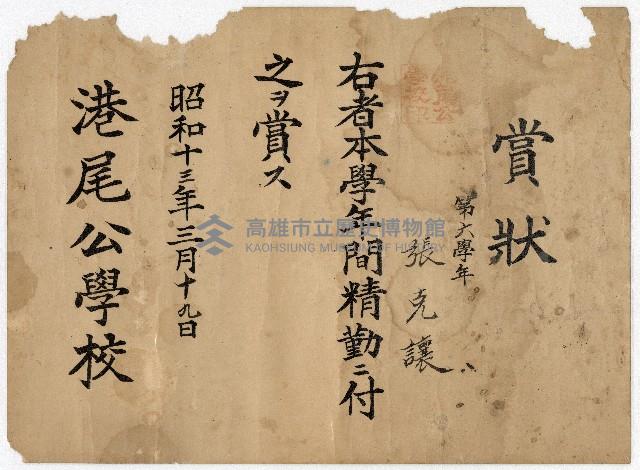 賞狀
第六學年
張克讓
右者本學年間精勤ニ付
之ヲ賞ス
昭和十三年三月十九日
港尾公學校
高雄市立歷史博物館
KAOHSIUNG MUSEUM OF HISTORY